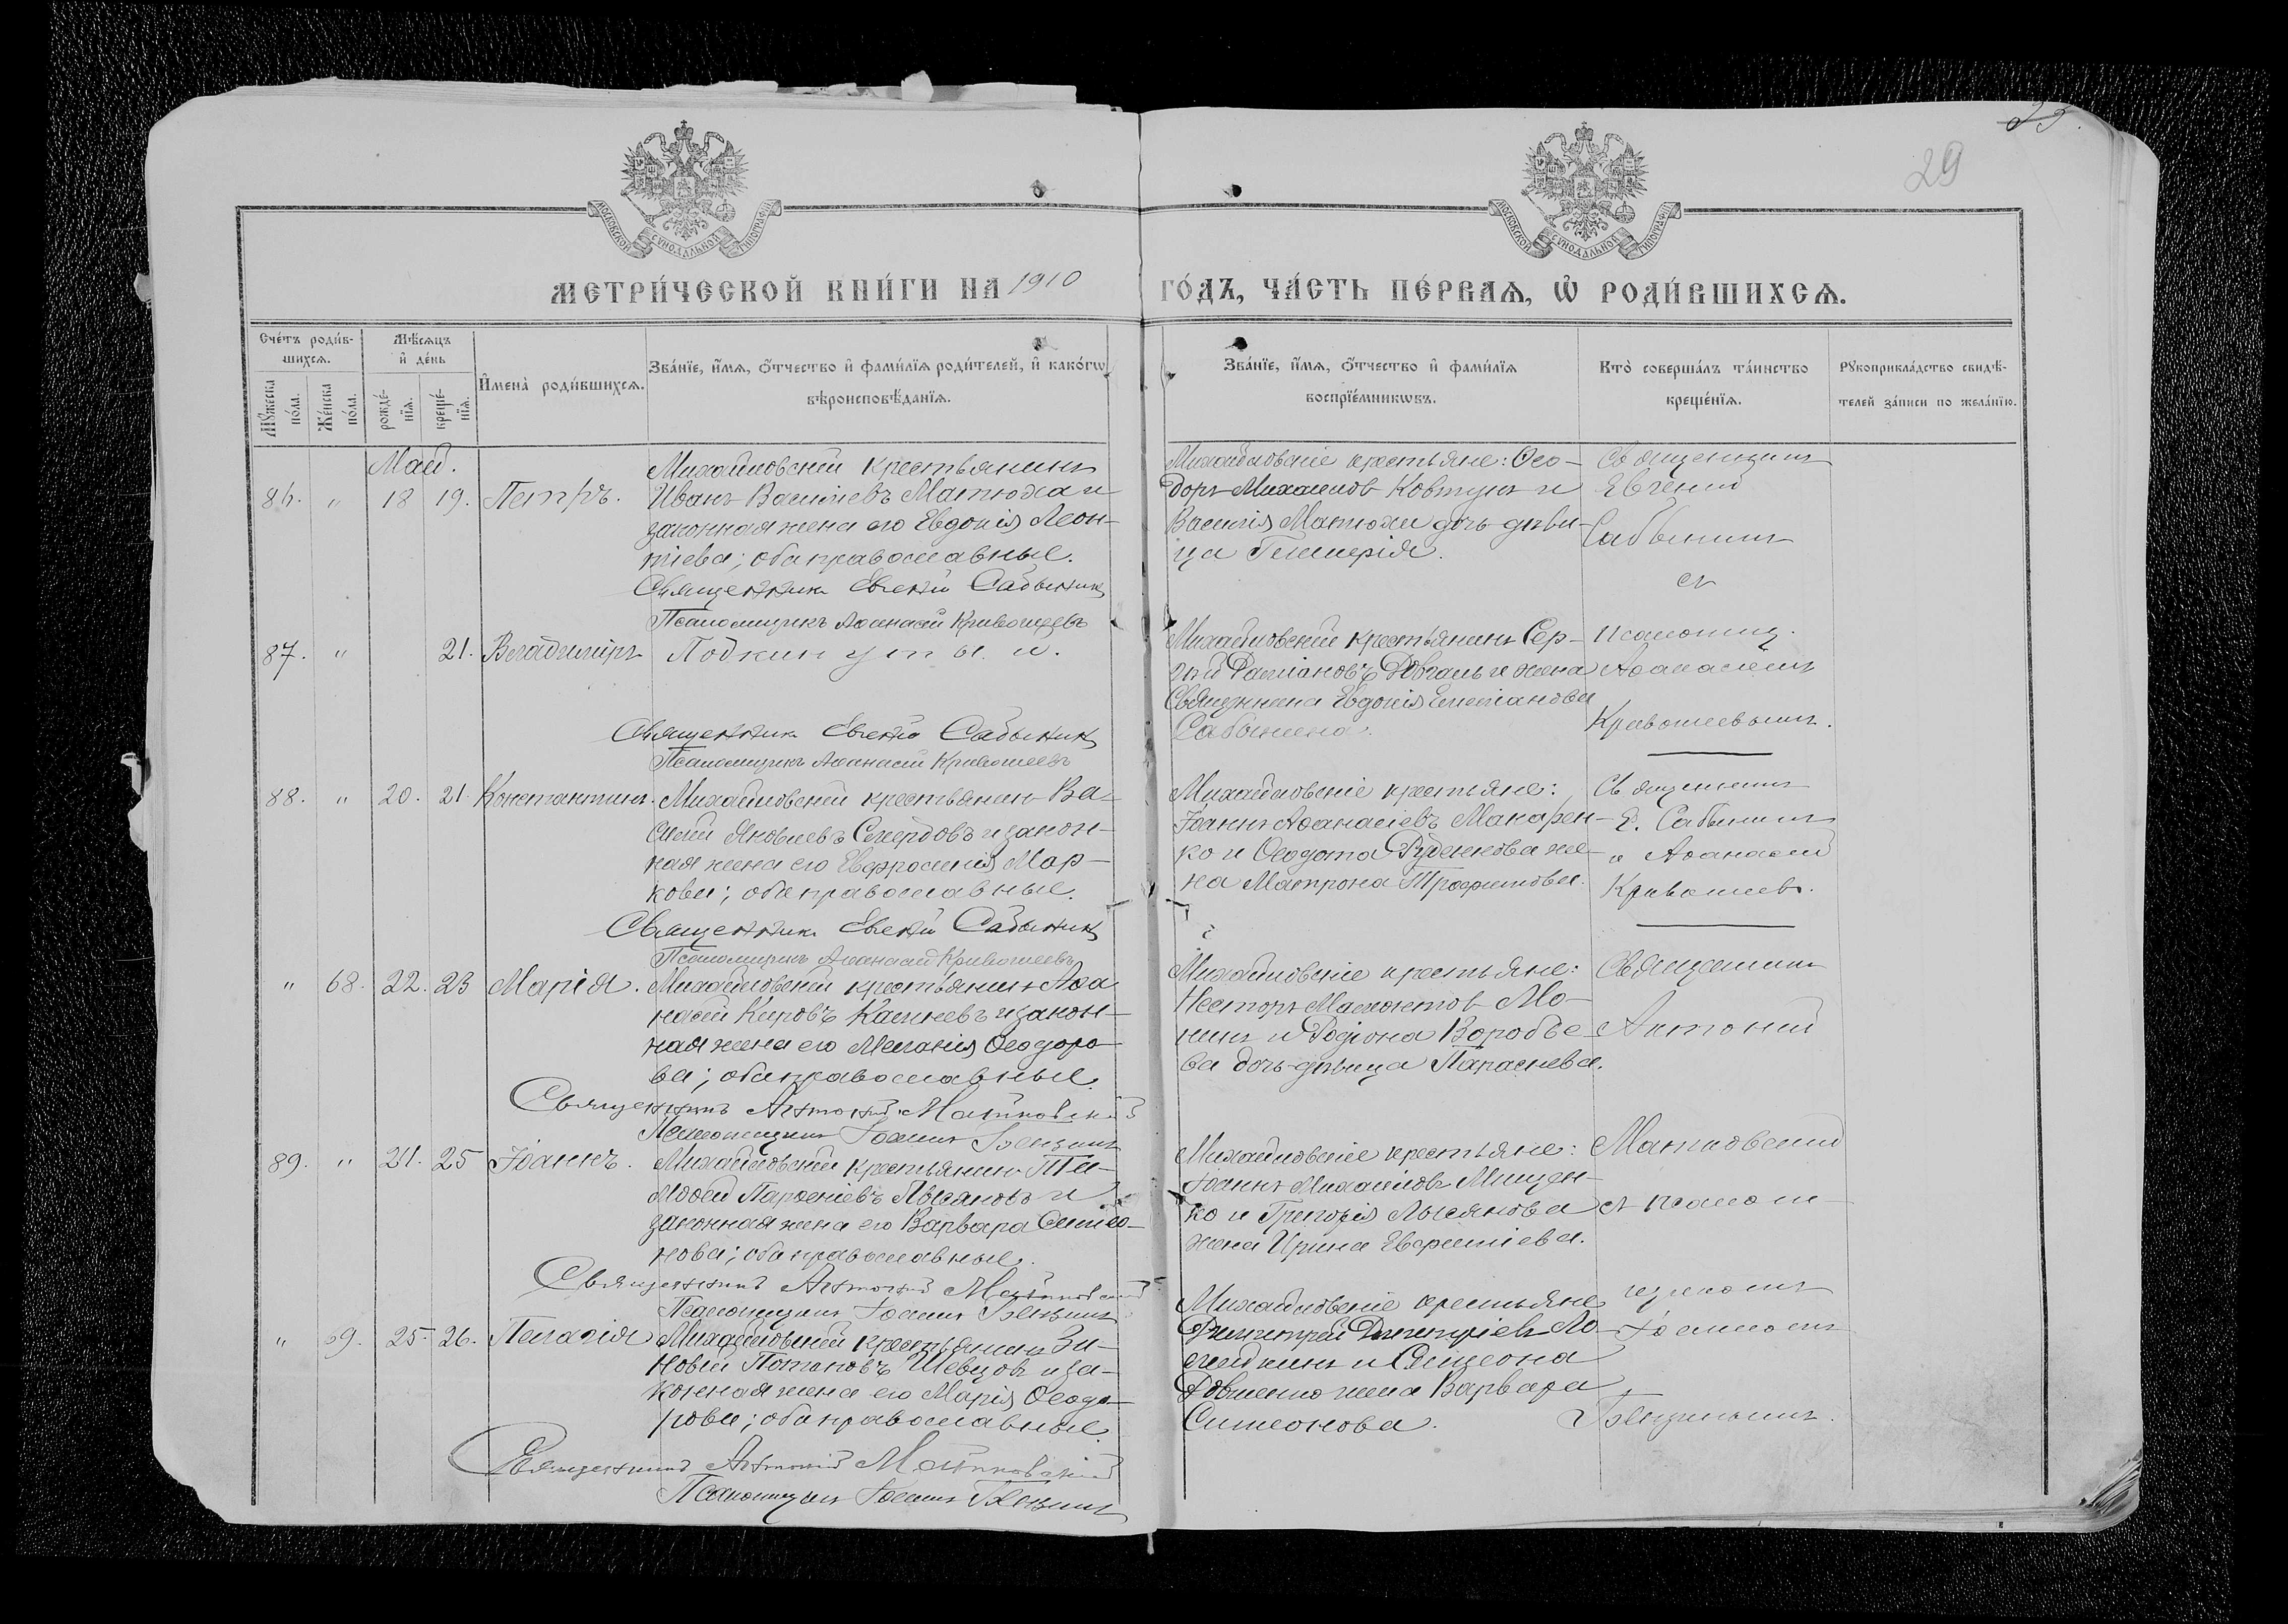 29
МОСКОВСКОЙ СѴНОДАЛЬНОЙ ТИПОГРАФІИ
МОСКОВСКОЙ СѴНОДАЛЬНОЙ ТИПОГРАФІИ
МЕТРИ́ЧЕСКОЙ КНИ́ГИ НА 1910 ГО́ДЪ, ЧА́СТЬ ПЕ́РВАѦ, Ѡ҆ РОДИ́ВШИХСѦ.
Сче́тъ роди́в-
шихсѧ.
Мꙋ́жеска по́ла.
Же́нска по́ла.
Мѣ́сѧцъ
и҆ де́нь
рожде́-
нїѧ.
креще́-
нїѧ.
И҆мена̀ роди́вшихсѧ.
Зва́нїе, и҆́мѧ, ѻ҆́тчество и҆ фами́лїѧ роди́телей, и҆ како́гѡ
вѣроисповѣ́данїѧ.
Зва́нїе, и҆́мѧ, ѻ҆́тчество и҆ фами́лїѧ
воспрїе́мникѡвъ.
Кто̀ соверша́лъ та́инство
креще́нїѧ.
Рꙋкоприкла́дство свидѣ́-
телей за́писи по жела́нїю.
Май.
86. " 18 19. Петръ.
Михайловскій крестьянинъ
Иванъ Васильевъ Матюха и
законная жена его Евдокія Леон-
тіева; оба православные.
Священникъ Евгеній Сабынинъ
Псаломщикъ Аѳанасій Кривошеевъ
Михайловскіе крестьяне: Ѳео-
доръ Михаиловъ Ковтунъ и
Василія Матюхи дочь-дѣви-
ца Гликерія.
Священникъ
Евгеній
Сабынинъ
съ
псаломщ.
Аѳанасіемъ
Кривошеевымъ.
87. " 21. Владиміръ
Подкинутый.
Священникъ Евгеній Сабынинъ
Псаломщикъ Аѳанасій Кривошеевъ
Михайловскій крестьянинъ Сер-
гій Даміановъ Довгаль и жена
Священника Евдокія Емеліанова
Сабынина.
88. " 20. 21. Константинъ.
Михайловскій крестьянинъ Ва-
силій Яковлевъ Смердовъ и закон-
ная жена его Евфросинія Мар-
кова; оба православные.
Священникъ Евгеній Сабынинъ
Псаломщикъ Аѳанасій Кривошеевъ
Михайловскіе крестьяне:
Іоаннъ Аѳанасіевъ Макарен-
ко и Ѳеодота Руденкова же-
на Матрона Трофимова.
Священникъ
Е. Сабынинъ
и Аѳанасій
Кривошеевъ.
" 68. 22. 23 Марія.
Михайловскій крестьянинъ Аѳа
насій Кировъ Калиевъ и закон-
ная жена его Меланія Ѳеодоро-
ва; оба православные.
Священникъ Антоній Матковскій
Псаломщикъ Іоаннъ
Михайловскіе крестьяне:
Несторъ Мамонтовъ Мо-
нинъ и Родіона Воробье-
ва дочь-дѣвица Параскева.
Священникъ
Антоній
Матковскій
съ псалом-
щикомъ
Іоанномъ
89. " 24. 25 Іоаннъ.
Михайловскій крестьянинъ Ти-
моѳей Парѳеніевъ Лысяновъ и
законная жена его Варвара Симео-
нова; оба православные.
Священникъ Антоній Матковскій
Псаломщикъ Іоаннъ
Михайловскіе крестьяне:
Іоаннъ Михаиловъ Мищен-
ко и Григорія Лысянова
жена Ирина Евфиміева.
" 69. 25. 26. Пелагія
Михайловскій крестьянинъ Зи-
новій Потаповъ Шевцовъ и за-
конная жена его Марія Ѳеодо-
рова; оба православные.
Священникъ Антоній Матковскій
Псаломщикъ Іоаннъ
Михайловскіе крестьяне
Димитрій Димитріевъ Ло-
и Симеона
Довженко жена Варвара
Симеонова.